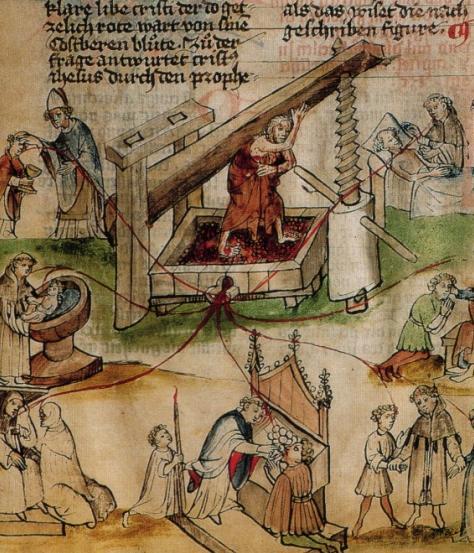 klare libe cristi der do get
zelich rote wart von sine
Costberen blute. Zů der
frage antwurtet crist9
ihesus durch den prophe
als das wiset die nach
geschriben figure.